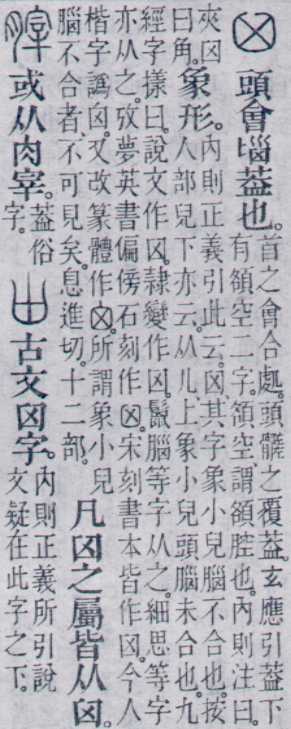 囟 頭會匘葢也。首之會合處。頭髓之覆葢。玄應引葢下有頟空二字。頟空、謂頟腔也。內則注曰。
夾囟曰角。象形。內則正義引此云。囟、其字象小兒腦不合也。按人部兒下亦云。从儿、上象小兒頭腦未合也。九
經字樣曰。說文作囟。隷變作囟。鬛腦等字从之。細思等字亦从之。攷夢英書偏傍石刻作囟。宋刻書本皆作囟。今人
楷字譌囪。又改篆體作囟。所謂象小兒腦不合者、不可見矣。息進切。十二部。凡囟之屬皆从囟。
膟 或从肉宰。葢俗字。古文囟字。內則正義所引說文疑在此字之下。